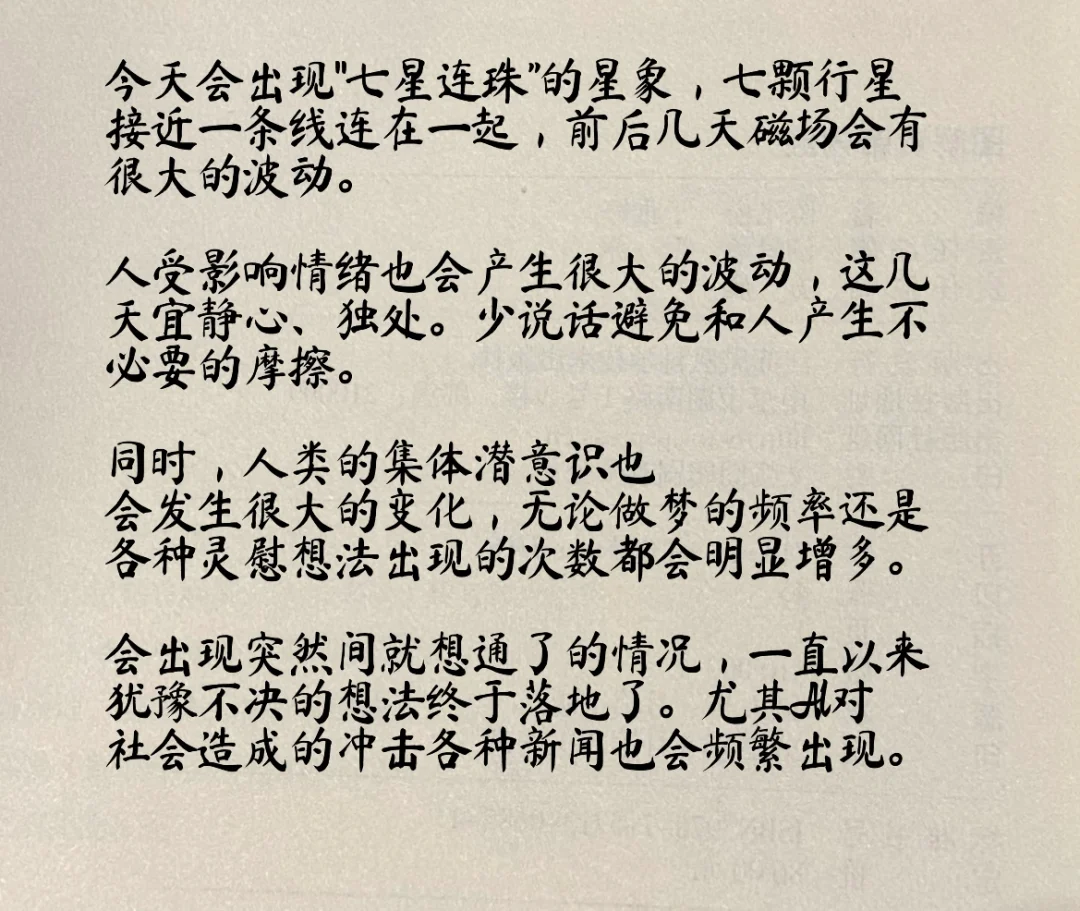 今天会出现"七星连珠"的星象，七颗行星
接近一条线连在一起，前后几天磁场会有
很大的波动。
人受影响情绪也会产生很大的波动，这几
天宜静心、独处。少说话避免和人产生不
必要的摩擦。
同时，人类的集体潜意识也
会发生很大的变化，无论做梦的频率还是
各种灵慰想法出现的次数都会明显增多。
会出现突然间就想通了的情况，一直以来
犹豫不决的想法终于落地了。尤其AI对
社会造成的冲击各种新闻也会频繁出现。